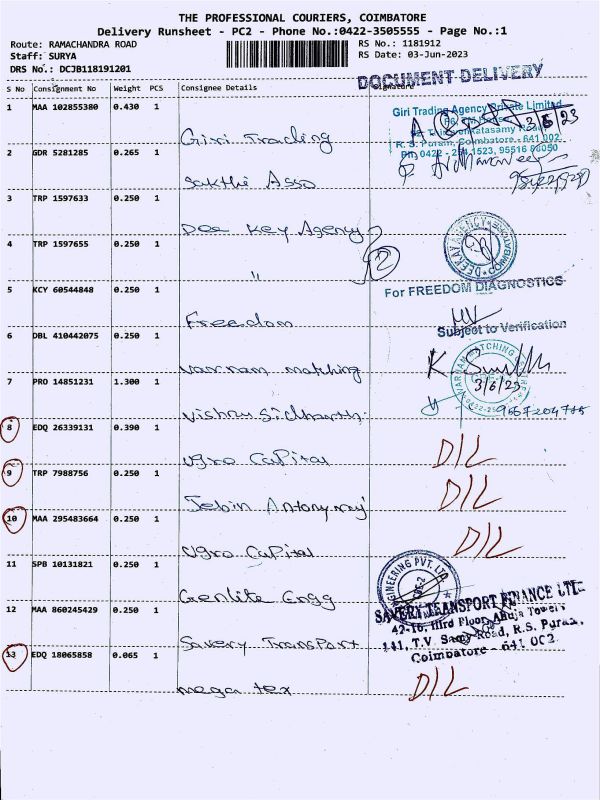 THE PROFESSIONAL COURIERS, COIMBATORE
Delivery Runsheet - PC2 - Phone No.:0422-3505555 - Page No.:1
Route: RAMACHANDRA ROAD
RS No.: 1181912
Staff: SURYA
RS Date: 03-Jun-2023
DRS No.: DCJB118191201
DOCUMENT DELIVERY
S No Consignment No Weight PCS Consignee Details Signature
1 MAA 102855380 0.430 1 Giri Trading
Giri Trading Agency Private Limited
R. S. Puram, Coimbatore - 641 002
3/6/23
2 GDR 5281285 0.265 1 Sakthi Asso
3 TRP 1597633 0.250 1 Dee Key Agency
4 TRP 1597655 0.250 1 "
2
DEEKAY AGENCY COIMBATORE
5 KCY 60544848 0.250 1 Freedom
For FREEDOM DIAGNOSTICS
Subject to Verification
6 DBL 410442075 0.250 1 Varnam matching
3/6/23
7 PRO 14851231 1.300 1 Vishnu Sidharth
8 EDQ 26339131 0.390 1 Ugro Capital D/L
9 TRP 7988756 0.250 1 Jebin Antonyraj D/L
10 MAA 295483664 0.250 1 Ugro Capital D/L
11 SPB 10131821 0.250 1 Genlite Engg
ENGINEERING PVT. LTD
12 MAA 860245429 0.250 1 Savery Transport
SAVERY TRANSPORT FINANCE LTD
42-16, IIIrd Floor, Ahuja Towers
141, T.V. Samy Road, R.S. Puram,
Coimbatore - 641 002
13 EDQ 18065858 0.065 1 mega tex D/L